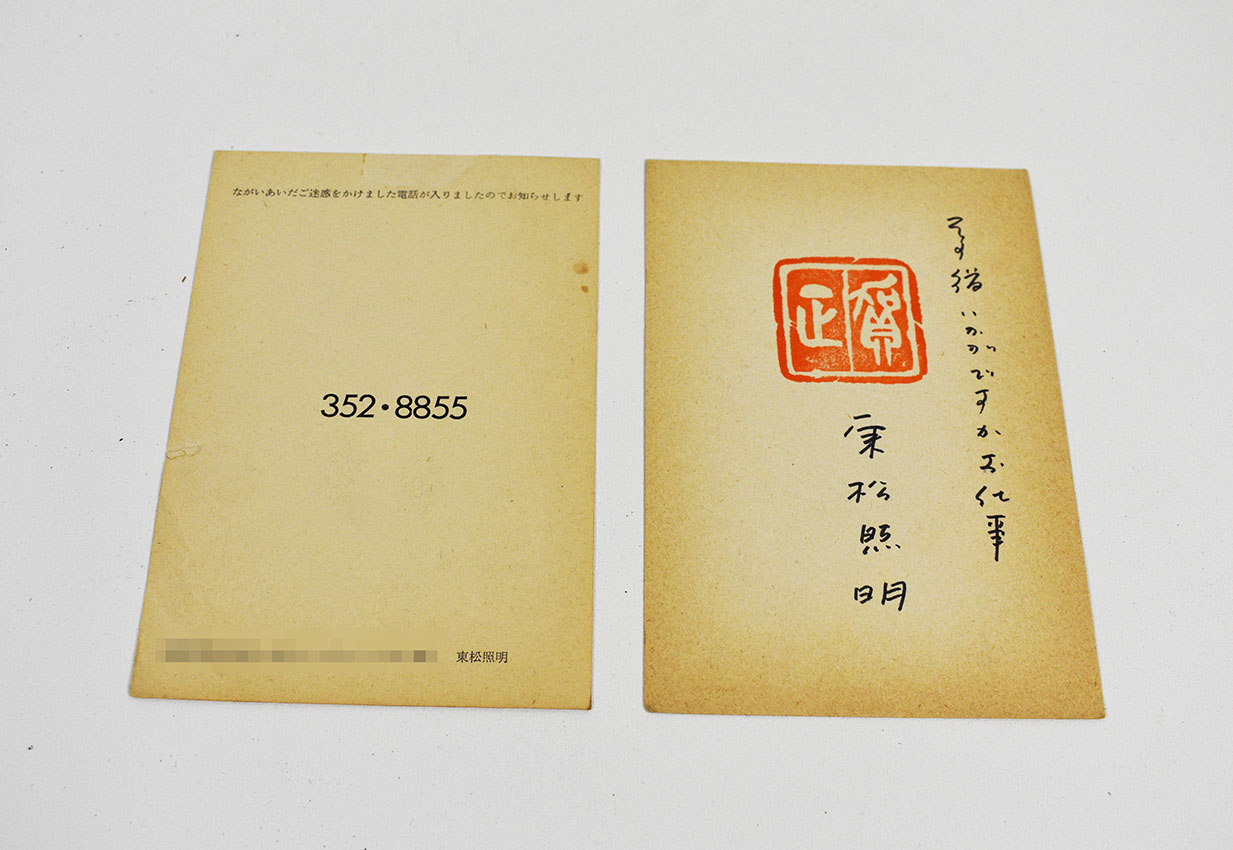 ながいあいだご迷惑をかけました電話が入りましたのでお知らせします
352・8855
東松照明
その後いかがですかお仕事
賀正
東松照明